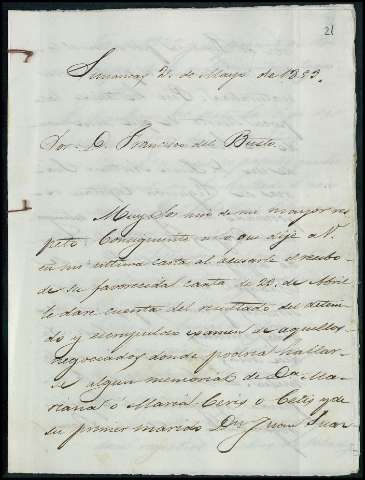 21
Simancas 2 de Mayo de 1853.
Sor. D. Francisco del Busto.
Muy Sor mio de mi mayor res
peto. Consiguiente a lo que dije a V.
en mi ultima carta al acusarle el recibo
de su favorecida carta de 22 de Abril
le dare cuenta del resultado del deteni
do y escrupuloso examen de aquellos
negociados donde podria hallar
se algun memorial de Da. Ma
riana ó Maria Ceris o Celis y de
su primer marido Dn Juan Suar